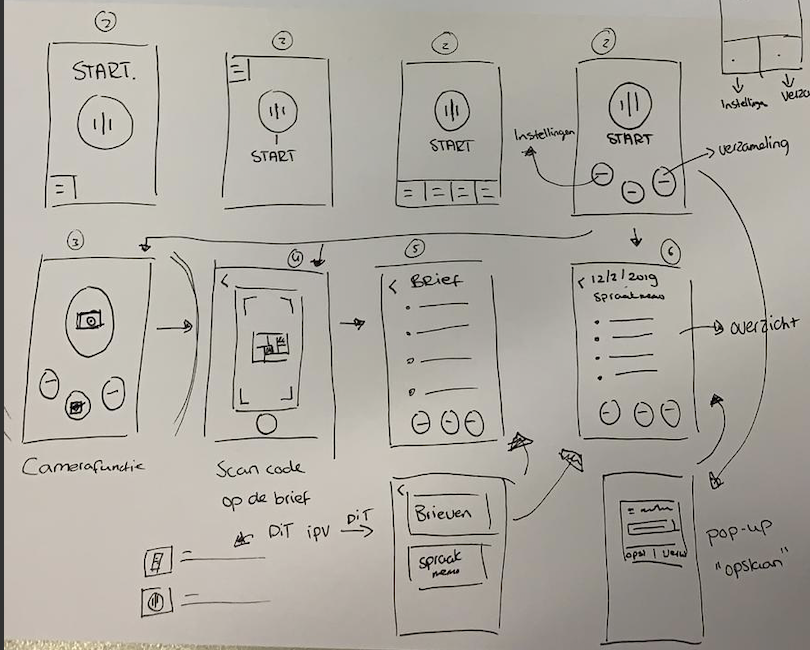 2
START.
2
START
2
START
2
START
Instellingen
verzameling
Instellingen
Verza
3
Camerafunctie
4
Scan code
op de brief
5
Brief
6
12/2/2019
Spraakmemo
overzicht
DiT ipv DiT
Brieven
spraak
memo
opsl | verw
pop-up
"opslaan"